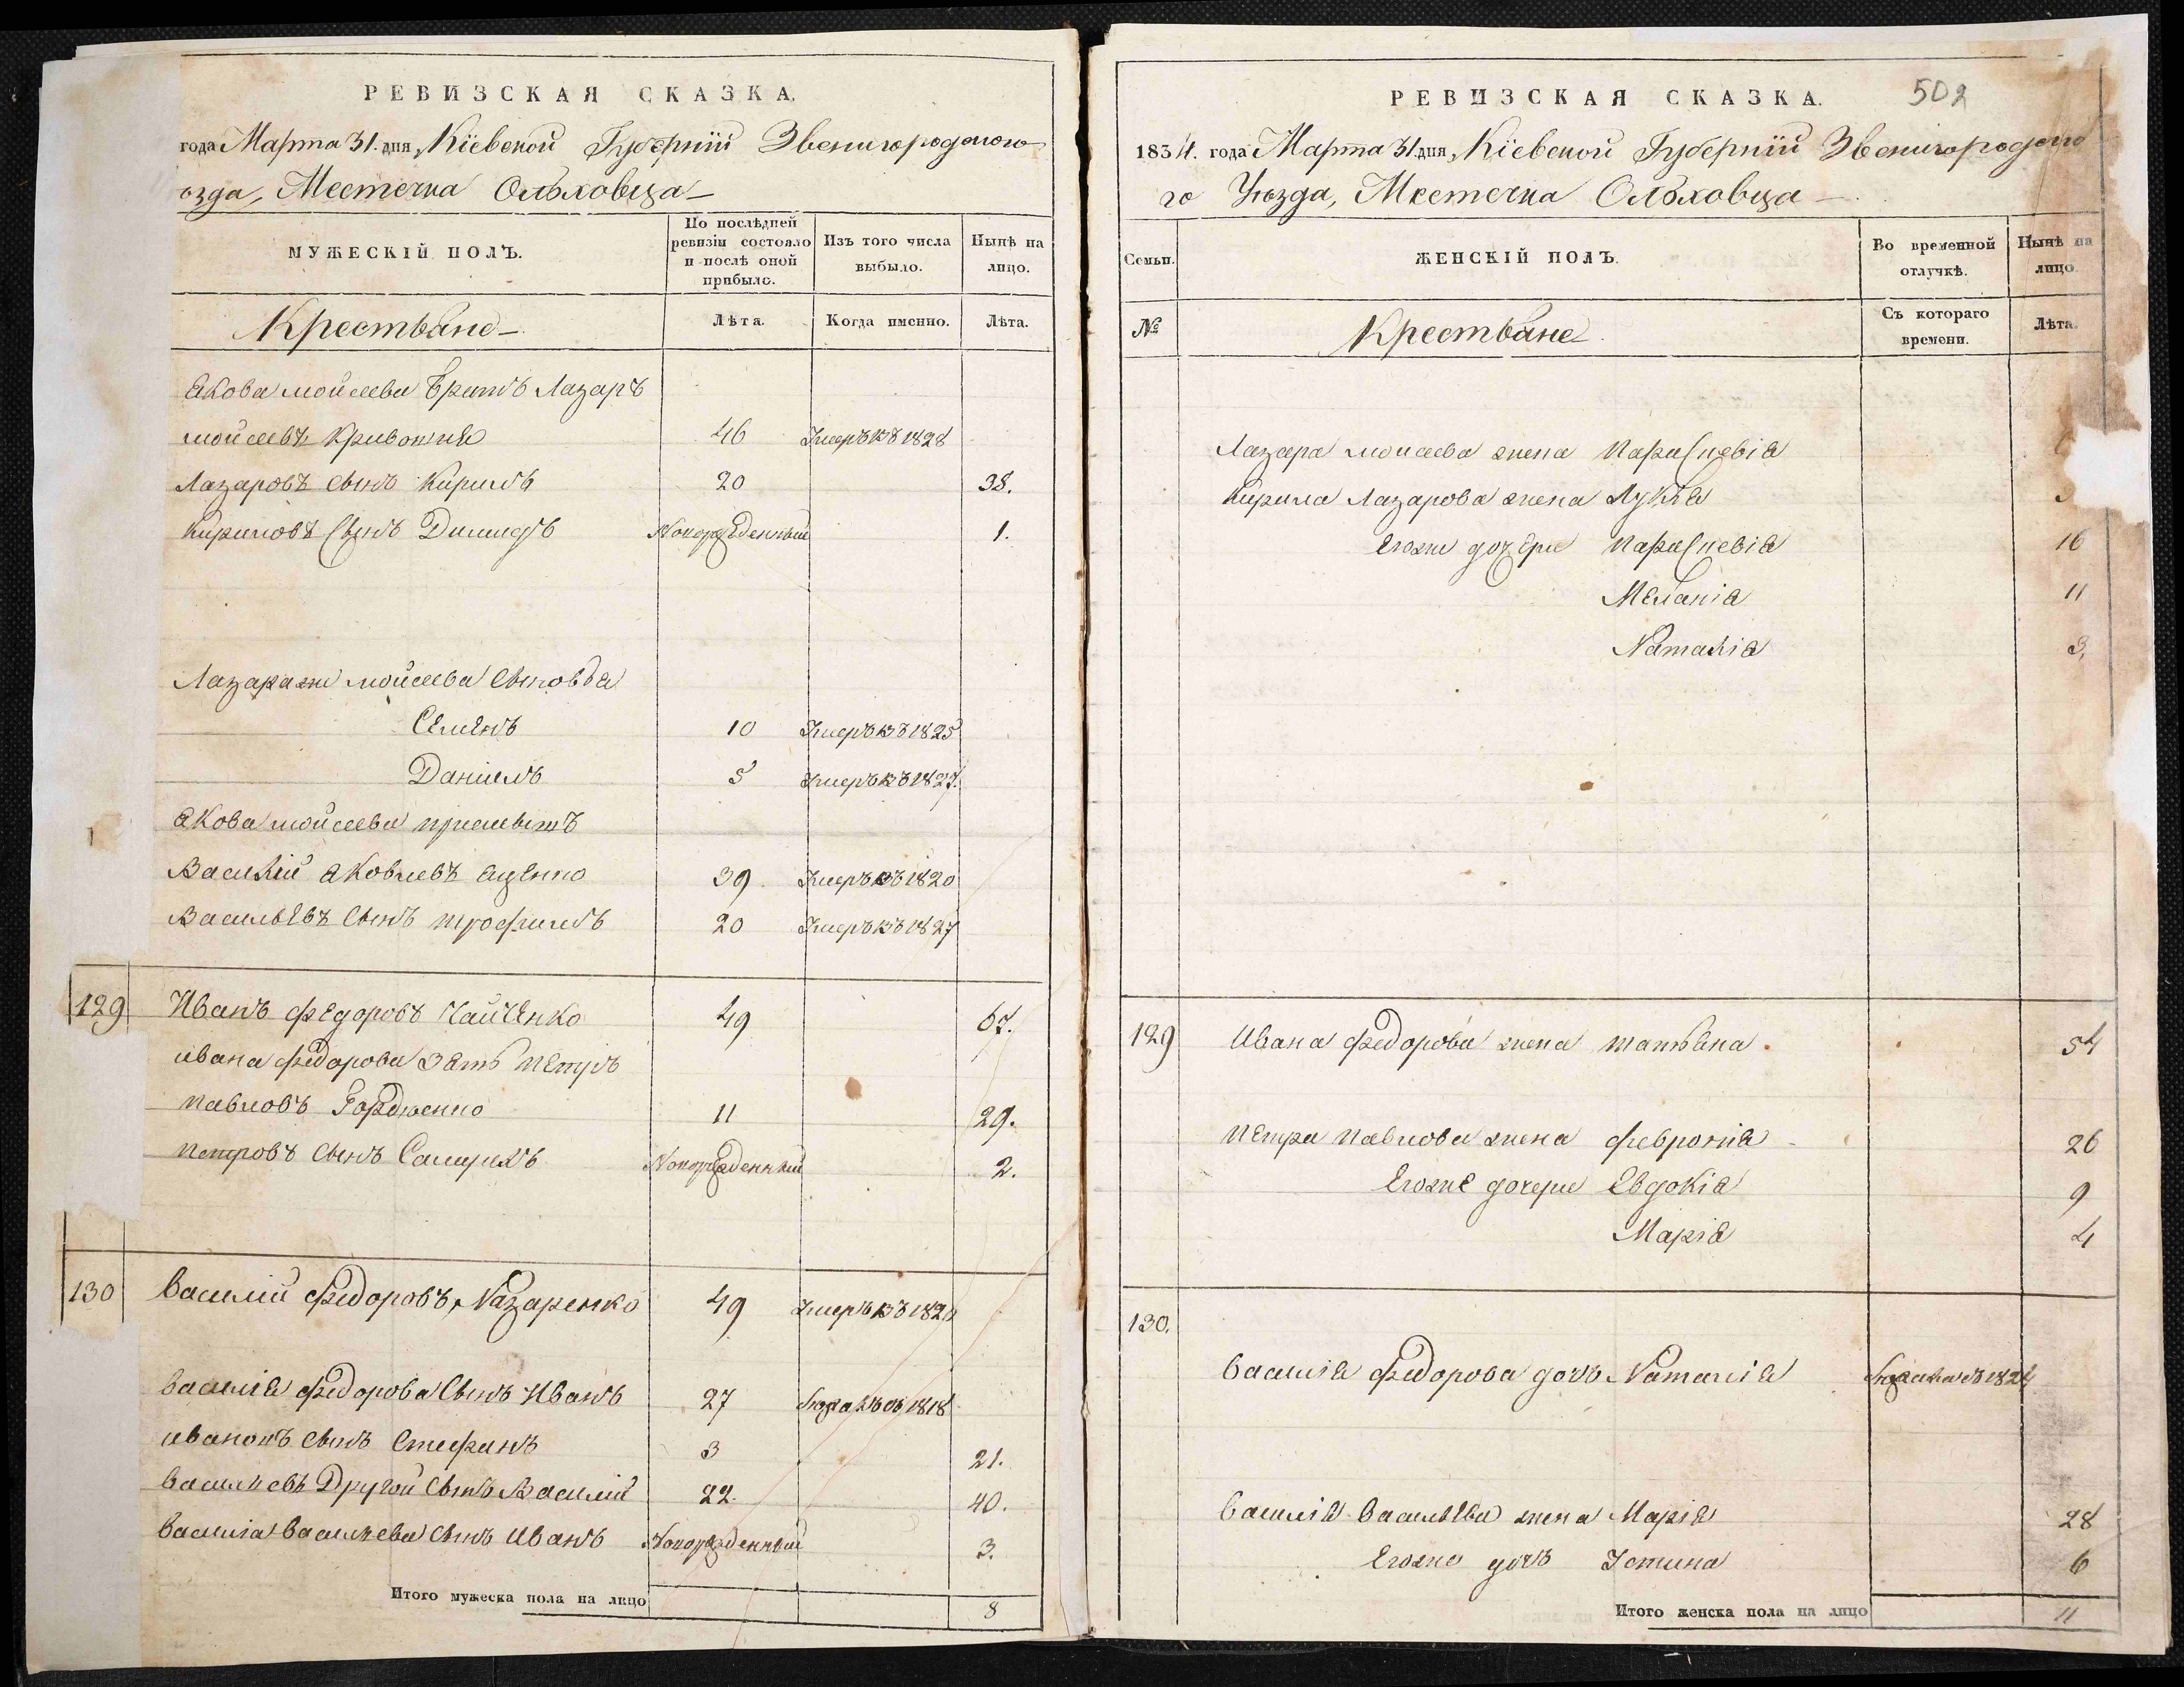 РЕВИЗСКАЯ СКАЗКА.
года Марта 31. дня, Кіевской Губерніи Звенигородского
ѣзда, Местечка Ольховца
МУЖЕСКІЙ ПОЛЪ.
По послѣдней ревизіи состояло и послѣ оной прибыло.
Изъ того числа выбыло.
Нынѣ на лицо.
Крестьяне
Лѣта.
Когда именно.
Лѣта.
Якова мойсеева братъ Лазаръ
мойсеевъ 46 Умеръ въ 1828
Лазаровъ сынъ Кирилъ 20 38.
Кириловъ Сынъ Новорожденный 1.
Лазара же мойсеева сыновья
Семенъ 10 Умеръ въ 1825
Даніилъ 5 Умеръ въ 1827.
Якова мойсеева приемышъ
Василій Яковлевъ 39. Умеръ въ 1820
Васильевъ Сынъ трофимъ 20 Умеръ въ 1827
129 Иванъ федоровъ Чайченко 49 67.
ивана федорова зять Петръ
Павловъ Гордіенко 11 29.
Петровъ Сынъ Новорожденный 2.
130 Василій федоровъ Назаренко 49 Умеръ въ 1820
Василія федорова Сынъ Иванъ 27 1818
ивановъ Сынъ Стефанъ 3 21.
Васильевъ Другой Сынъ Василій 22. 40.
Василія Васильева Сынъ Иванъ Новорожденный 3.
Итого мужеска пола на лицо 8
502
РЕВИЗСКАЯ СКАЗКА.
1834. года Марта 31 дня, Кіевской Губерніи Звенигородско
го Уѣзда, Местечка Ольховца
Семьи.
ЖЕНСКІЙ ПОЛЪ.
Во временной отлучкѣ.
Нынѣ на лицо.
№
Крестьяне
Съ котораго времени.
Лѣта.
Лазара мойсеева жена Параскевія
Кирила Лазарова жена Лукія
Егоже дочери Параскевія 16
Меланія 11
Наталія 3,
129 Ивана федорова жена татьяна. 54
Петра Павлова жена февронія 26
Егоже дочери Евдокія 9
Марія 4
130.
Василія федорова дочь Наталія
Василія Васильева жена Марія 28
Егоже дочь Устина 6
Итого женска пола на лицо 11